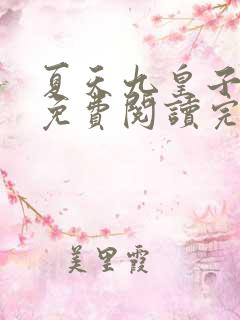 夏天九皇子
免費閱讀完
美里霞